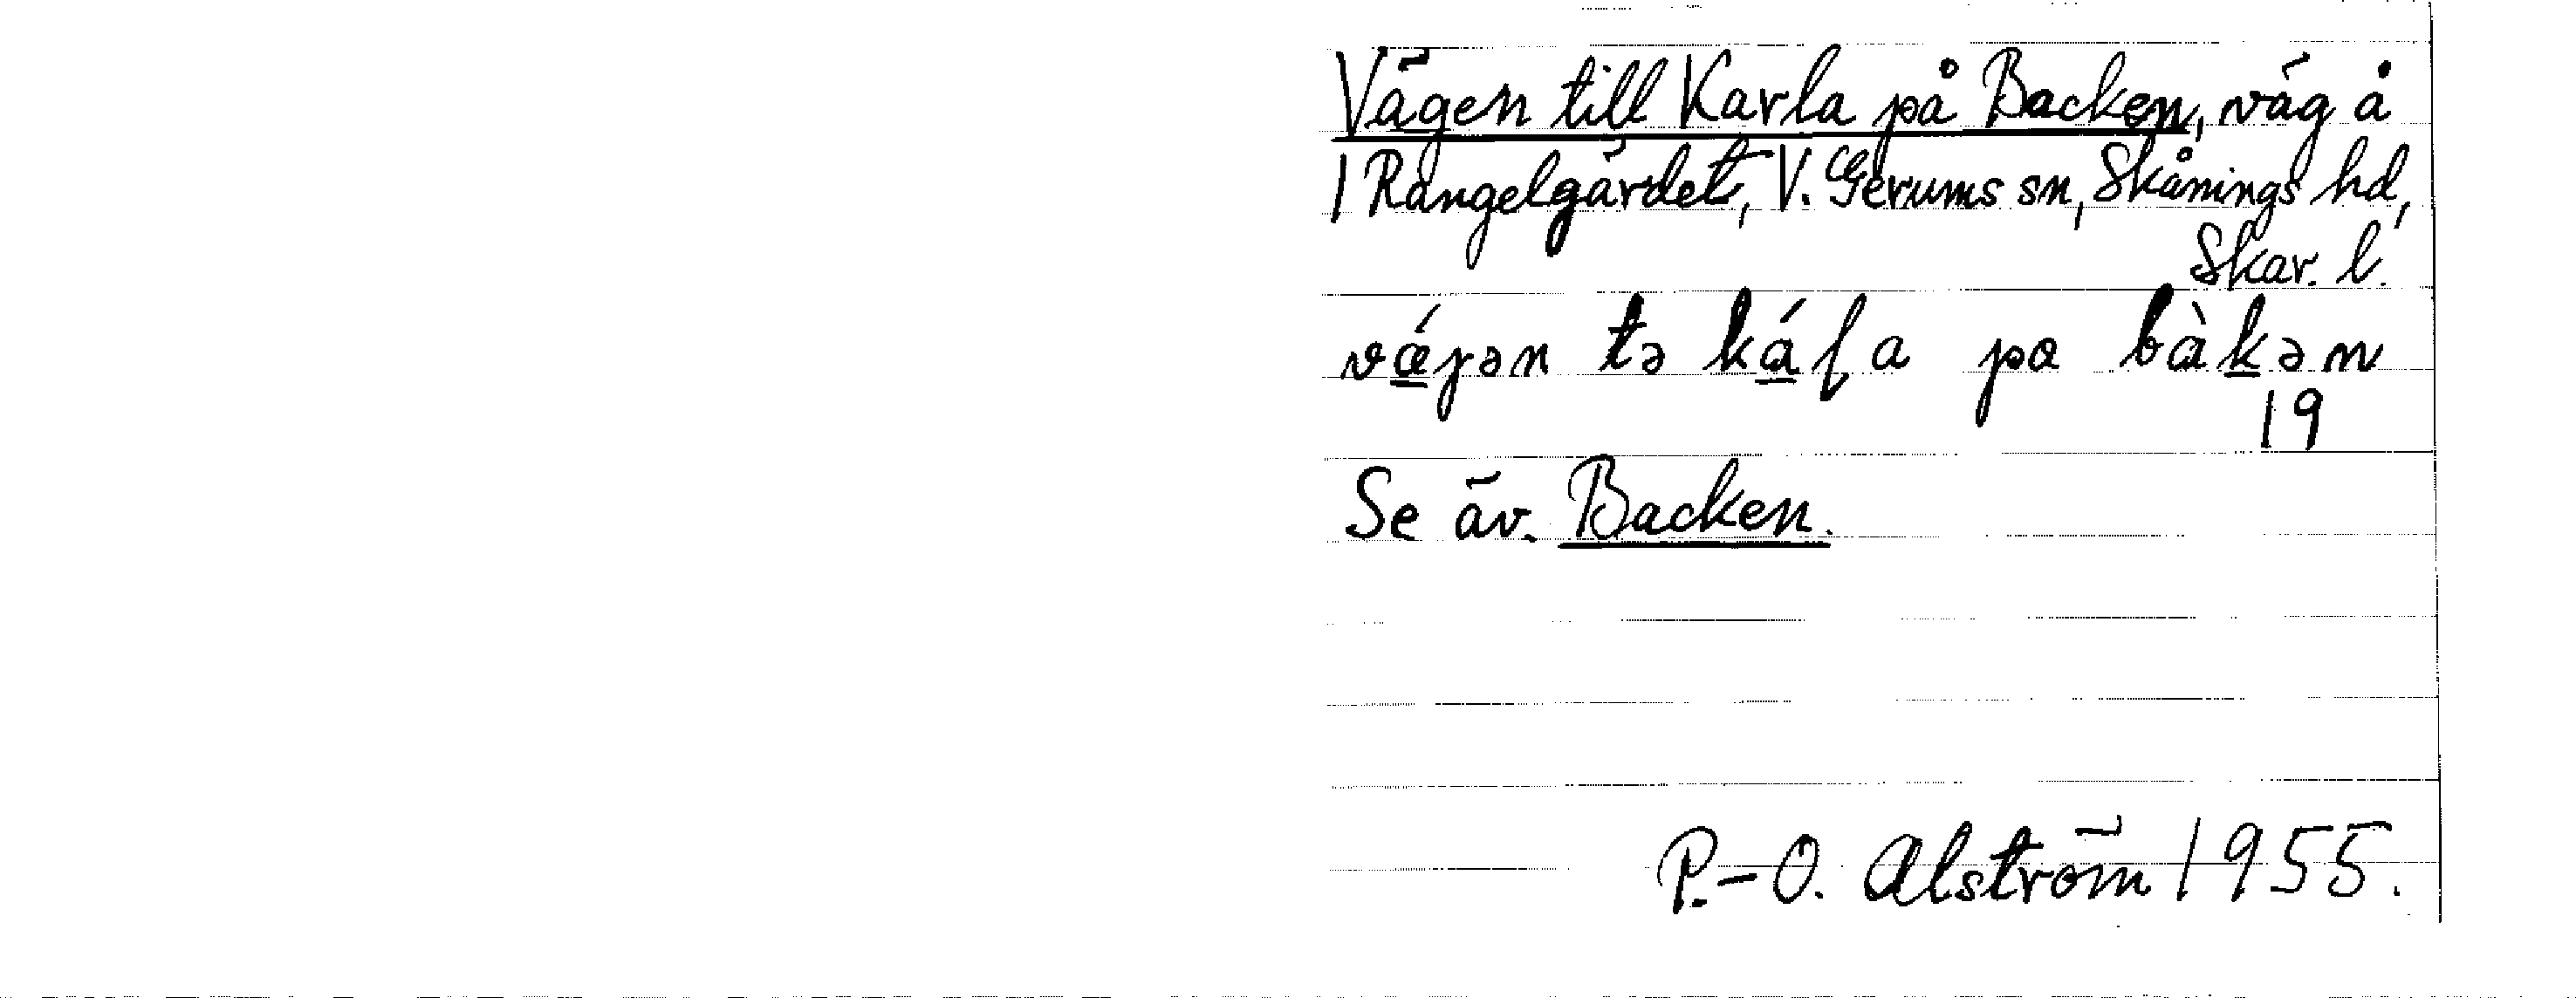 Vägen till Karla på Backen, väg å
1 Rangelgärdet, V. Gerums sn, Skånings hd,
Skar. l.
vǽ̲jən tə ká̲ɭa pa bàk̲ən
19
Se äv. Backen.
P.-O. Alström 1955.